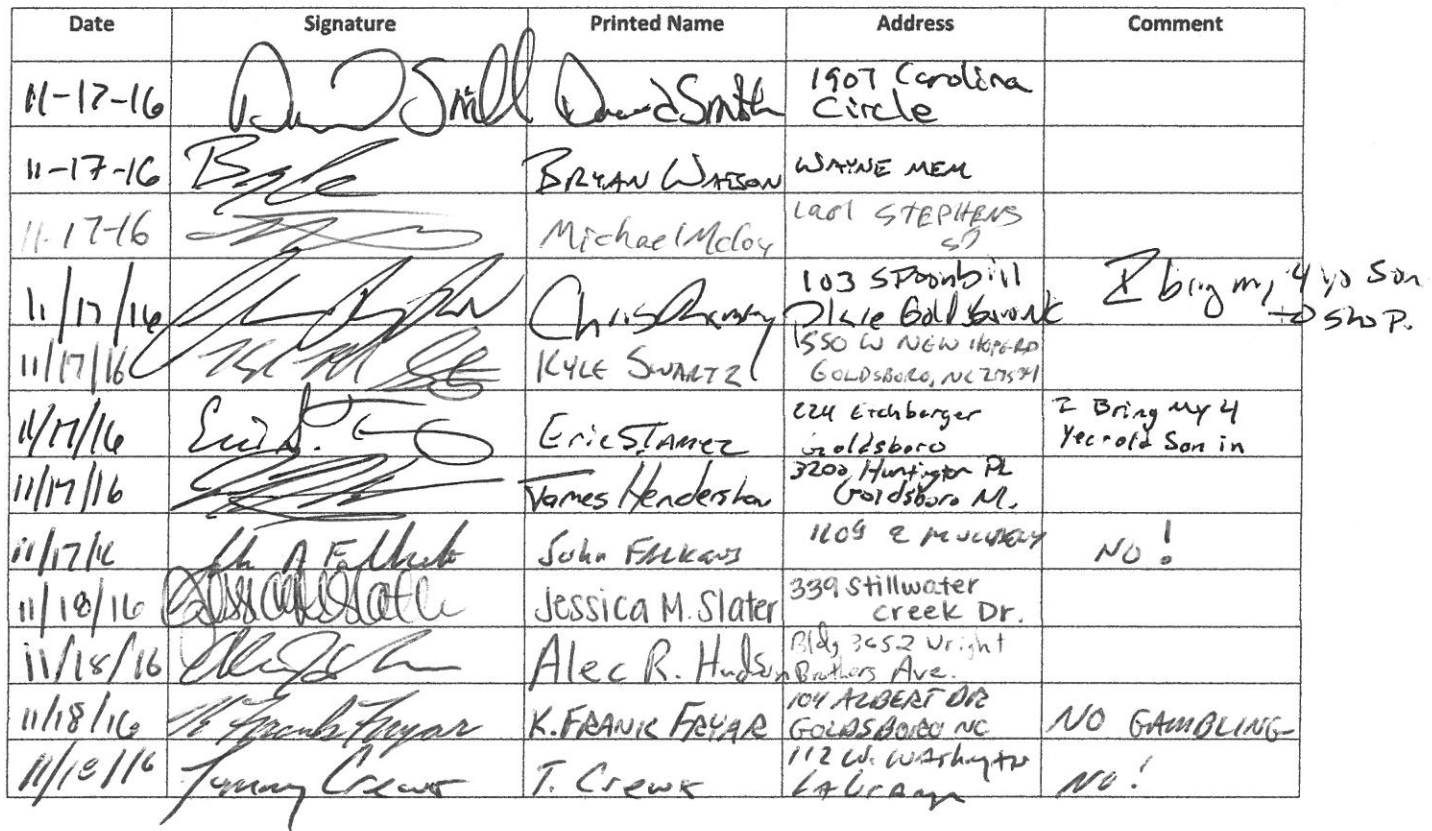 Date Signature Printed Name Address Comment
11-17-16 David Smith 1907 Carolina
Circle
11-17-16 BRYAN WATSON WAYNE MEM
11-17-16 Michael McCoy STEPHENS
ST
11/17/16 Chris 103 Spoonbill I bring my 4 yo son
Place Goldsboro NC to shop.
11/17/16 KYLE SWARTZ 550 W NEW HOPE RD
GOLDSBORO, NC 27534
11/17/16 Eric S. TAMEZ 224 Etchberger I Bring My 4
Goldsboro Year old Son in
11/17/16 James Hendershaw 3200 Huntington PL
Goldsboro N.
11/17/16 John 1109 E MULBERRY NO!
11/18/16 Jessica M. Slater 339 Stillwater
Creek Dr.
11/18/16 Alec R. Hudson Bldg 3652 Wright
Brothers Ave.
11/18/16 K. Frank Fryar K. FRANK FRYAR 104 ALBERT DR
GOLDSBORO NC NO GAMBLING
11/18/16 Tommy Crews T. Crews 112 W. Washington
LaGrange NO!